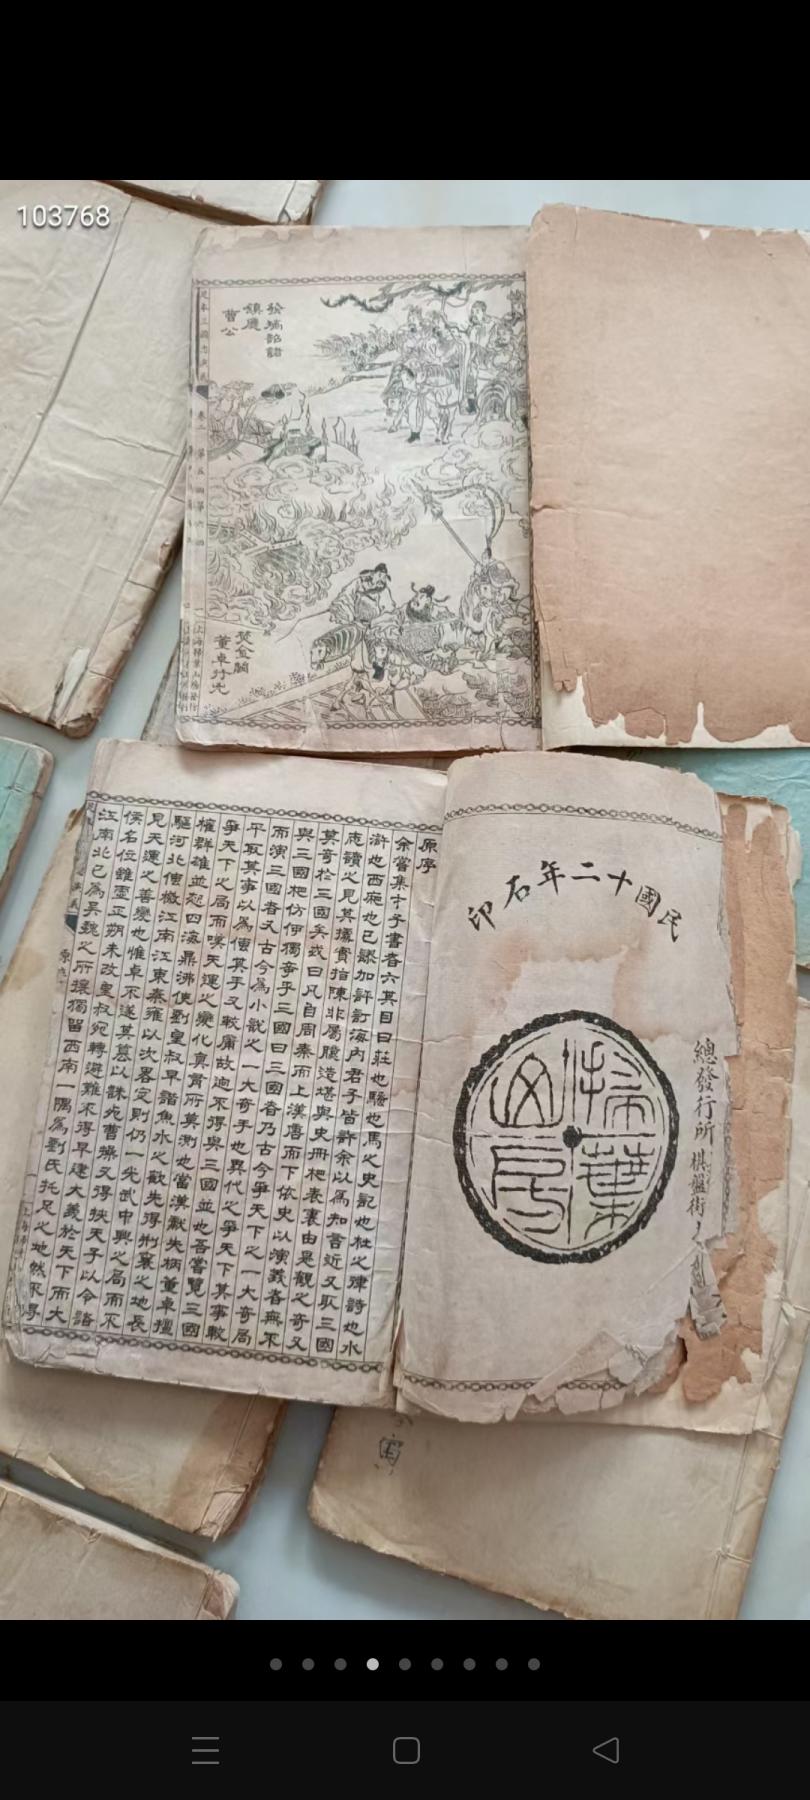 103768
發矯詔諸
鎮應
曹公
焚金闕
董卓行兇
第五回第六回
民國十二年石印
掃葉
山房
總發行所 棋盤街
原序
余嘗集才子書者六其目曰莊也騷也馬之史記也杜之律詩也水
滸也西廂也已謬加評訂海內君子皆許余以為知言近又取三國
志讀之見其據實指陳非屬臆造堪與史冊相表裏由是觀之奇又
莫奇於三國矣或曰凡自周秦而上漢唐而下依史以演義者無不
與三國相仿何獨奇乎三國曰三國者乃古今爭天下之一大奇局
而演三國者又古今為小說之一大奇手也異代之爭天下其事較
平取其事以為傳其手又較庸故迥不得與三國並也吾嘗覽三國
爭天下之局而嘆天運之變化真有所莫測也當漢獻失柄董卓擅
權群雄並起四海鼎沸使劉皇叔早諧魚水之歡先得荊襄之地長
驅河北傳檄江南江東秦雍以次畧定則仍一光武中興之局而不
見天運之善變也惟卓不遂其篡以誅死曹操又得挾天子以令諸
侯名位雖虛正朔未改皇叔宛轉避難不得早建大義於天下而大
江南北已為吳魏之所攘獨留西南一隅為劉氏托足之地然不得